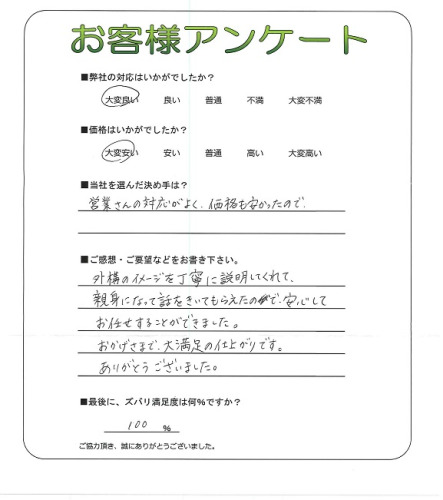 お客様アンケート
■弊社の対応はいかがでしたか？
大変良い 良い 普通 不満 大変不満
■価格はいかがでしたか？
大変安い 安い 普通 高い 大変高い
■当社を選んだ決め手は？
営業さんの対応がよく、価格も安かったので。
■ご感想・ご要望などをお書き下さい。
外構のイメージを丁寧に説明してくれて、
親身になって話をきいてもらえたので、安心して
お任せすることができました。
おかげさまで、大満足の仕上がりです。
ありがとうございました。
■最後に、ズバリ満足度は何％ですか？
100 ％
ご協力頂き、誠にありがとうございました。